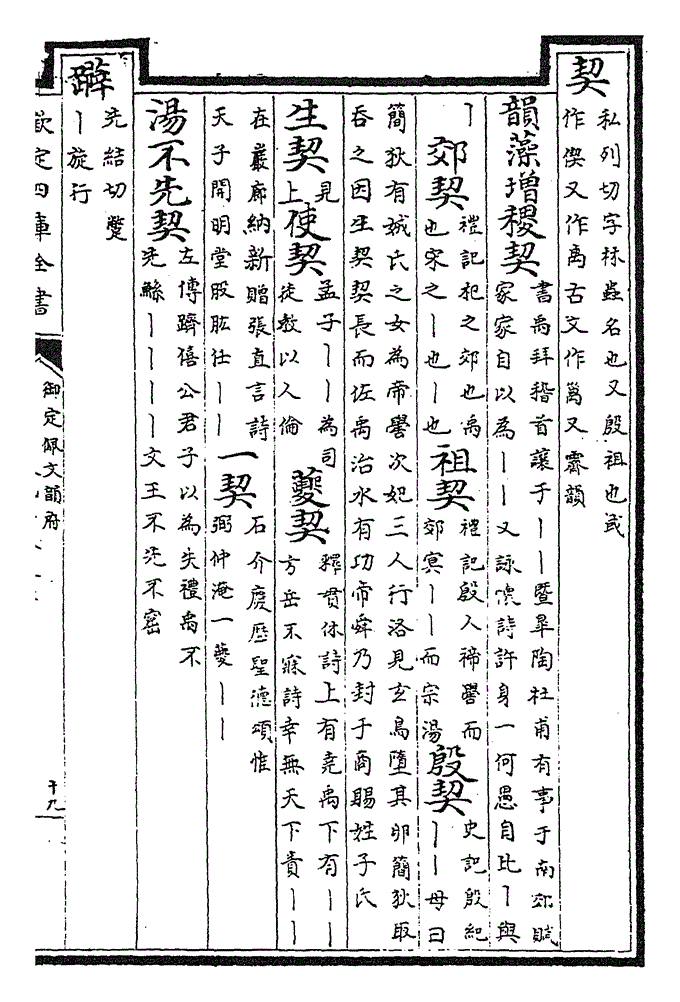 契
私列切字林蟲名也又殷祖也或
作偰又作禼古文作𥜿又霽韻
韻藻增稷契
書禹拜稽首讓于丨丨曁臯陶杜甫有事于南郊賦
家家自以為丨丨又詠懷詩許身一何愚自比丨與
丨
郊契
禮記杞之郊也禹
也宋之丨也丨也
祖契
禮記殷人禘嚳而
郊冥丨丨而宗湯
殷契
史記殷紀
丨丨母曰
簡狄有娀氏之女為帝嚳次妃三人行浴見玄鳥墮其卵簡狄取
吞之因生契契長而佐禹治水有功帝舜乃封于商賜姓子氏
生契
見
上
使契
孟子丨丨為司
徒教以人倫
夔契
釋貫休詩上有堯禹下有丨丨
方岳不寐詩幸無天下責丨丨
在巖廊納新贈張直言詩
天子開明堂股肱任丨丨
一契
石介慶歷聖德頌惟
弼仲淹一夔丨丨
湯不先契
左傳躋僖公君子以為失禮禹不
先鯀丨丨丨丨文王不先不窋
躃
先結切蹩
丨旋行
欽定四庫全書
御定佩文韻府
十九